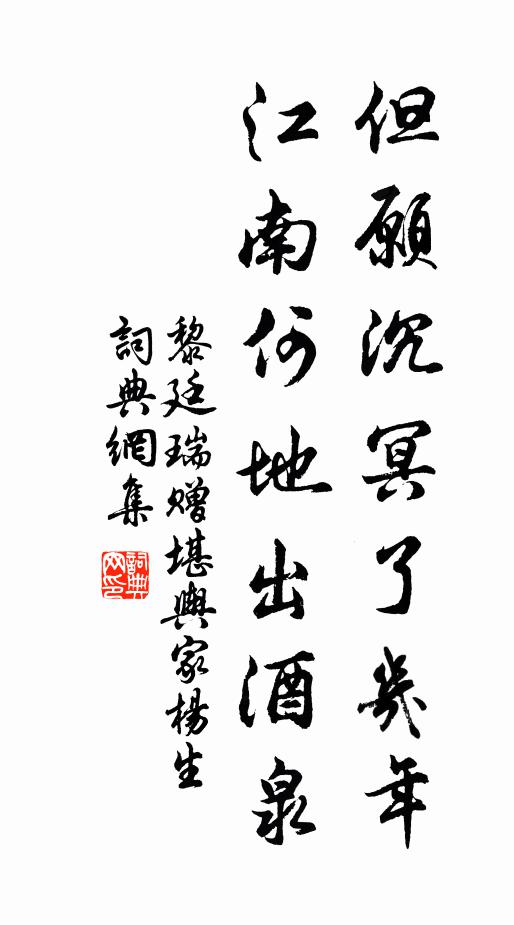 但願沉冥了幾年
江南何地出酒泉
黎廷瑞贈堪輿家楊生
詞典網集
詞典網印